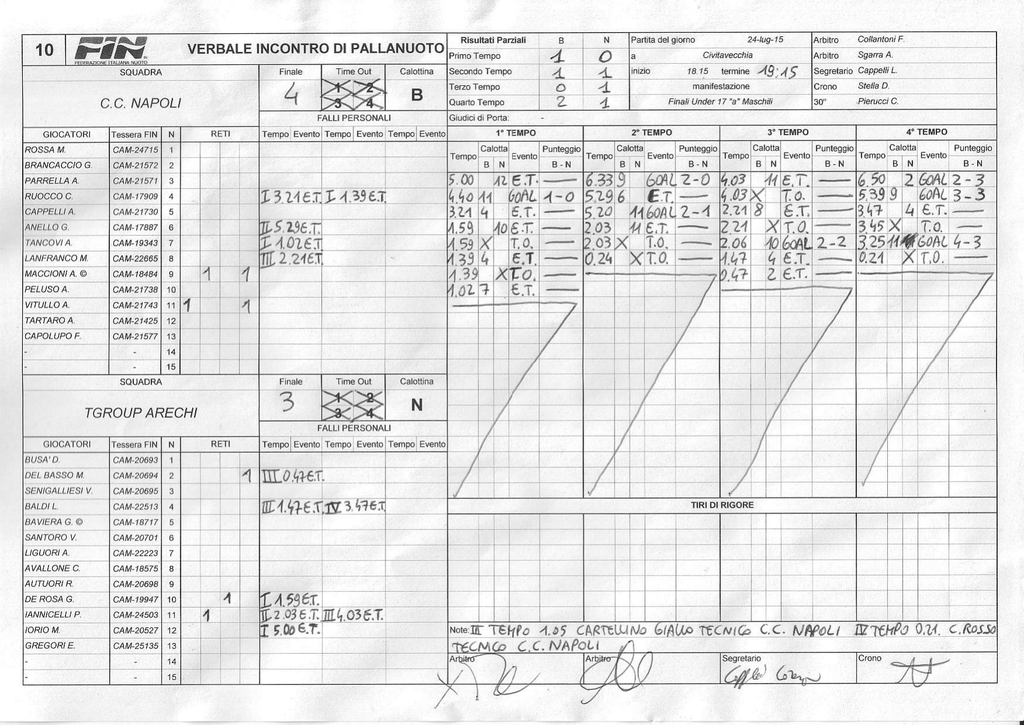 10 FIN FEDERAZIONE ITALIANA NUOTO VERBALE INCONTRO DI PALLANUOTO
Risultati Parziali B N Partita del giorno 24-lug-15 Arbitro Collantoni F.
Primo Tempo 1 0 a Civitavecchia Arbitro Sgarra A.
Secondo Tempo 1 1 inizio 18.15 termine 19:15 Segretario Cappelli L.
Terzo Tempo 0 1 manifestazione Crono Stella D.
Quarto Tempo 2 1 Finali Under 17 "a" Maschili 30" Pierucci C.
Giudici di Porta: -
SQUADRA Finale Time Out Calottina
C.C. NAPOLI 4 1 2 3 4 B
FALLI PERSONALI
GIOCATORI Tessera FIN N RETI Tempo Evento Tempo Evento Tempo Evento
ROSSA M. CAM-24715 1
BRANCACCIO G. CAM-21572 2
PARRELLA A. CAM-21571 3
RUOCCO C. CAM-17909 4 I 3.21 E.T. I 1.39 E.T.
CAPPELLI A. CAM-21730 5
ANELLO G. CAM-17887 6 II 5.29 E.T.
TANCOVI A. CAM-19343 7 I 1.02 E.T.
LANFRANCO M. CAM-22665 8 III 2.21 E.T.
MACCIONI A. © CAM-18484 9 1 1
PELUSO A. CAM-21738 10
VITULLO A. CAM-21743 11 1 1
TARTARO A. CAM-21425 12
CAPOLUPO F. CAM-21577 13
- - 14
- - 15
SQUADRA Finale Time Out Calottina
TGROUP ARECHI 3 1 2 3 4 N
FALLI PERSONALI
GIOCATORI Tessera FIN N RETI Tempo Evento Tempo Evento Tempo Evento
BUSA' D. CAM-20693 1
DEL BASSO M. CAM-20694 2 1 III 0.47 E.T.
SENIGALLIESI V. CAM-20695 3
BALDI L. CAM-22513 4 III 1.47 E.T. IV 3.47 E.T.
BAVIERA G. © CAM-18717 5
SANTORO V. CAM-20701 6
LIGUORI A. CAM-22223 7
AVALLONE C. CAM-18575 8
AUTUORI R. CAM-20698 9
DE ROSA G. CAM-19947 10 1 I 1.59 E.T.
IANNICELLI P. CAM-24503 11 1 II 2.03 E.T. III 4.03 E.T.
IORIO M. CAM-20527 12 I 5.00 E.T.
GREGORI E. CAM-25135 13
- - 14
- - 15
1° TEMPO 2° TEMPO 3° TEMPO 4° TEMPO
Tempo Calotta B N Evento Punteggio B - N Tempo Calotta B N Evento Punteggio B - N Tempo Calotta B N Evento Punteggio B - N Tempo Calotta B N Evento Punteggio B - N
5.00 12 E.T. — 6.33 9 GOAL 2-0 4.03 11 E.T. — 6.50 2 GOAL 2-3
4.40 11 GOAL 1-0 5.29 6 E.T. — 4.03 X T.O. — 5.39 9 GOAL 3-3
3.21 4 E.T. — 5.20 11 GOAL 2-1 2.21 8 E.T. — 3.47 4 E.T. —
1.59 10 E.T. — 2.03 11 E.T. — 2.21 X T.O. — 3.45 X T.O. —
1.59 X T.O. — 2.03 X T.O. — 2.06 10 GOAL 2-2 3.25 11 GOAL 4-3
1.39 4 E.T. — 0.24 X T.O. — 1.47 4 E.T. — 0.21 X T.O. —
1.39 X T.O. — 0.47 2 E.T. —
1.02 7 E.T. —
TIRI DI RIGORE
Note: III TEMPO 1.05 CARTELLINO GIALLO TECNICO C.C. NAPOLI IV TEMPO 0.21. C.ROSSO
TECNICO C.C. NAPOLI
Arbitro Arbitro Segretario Crono